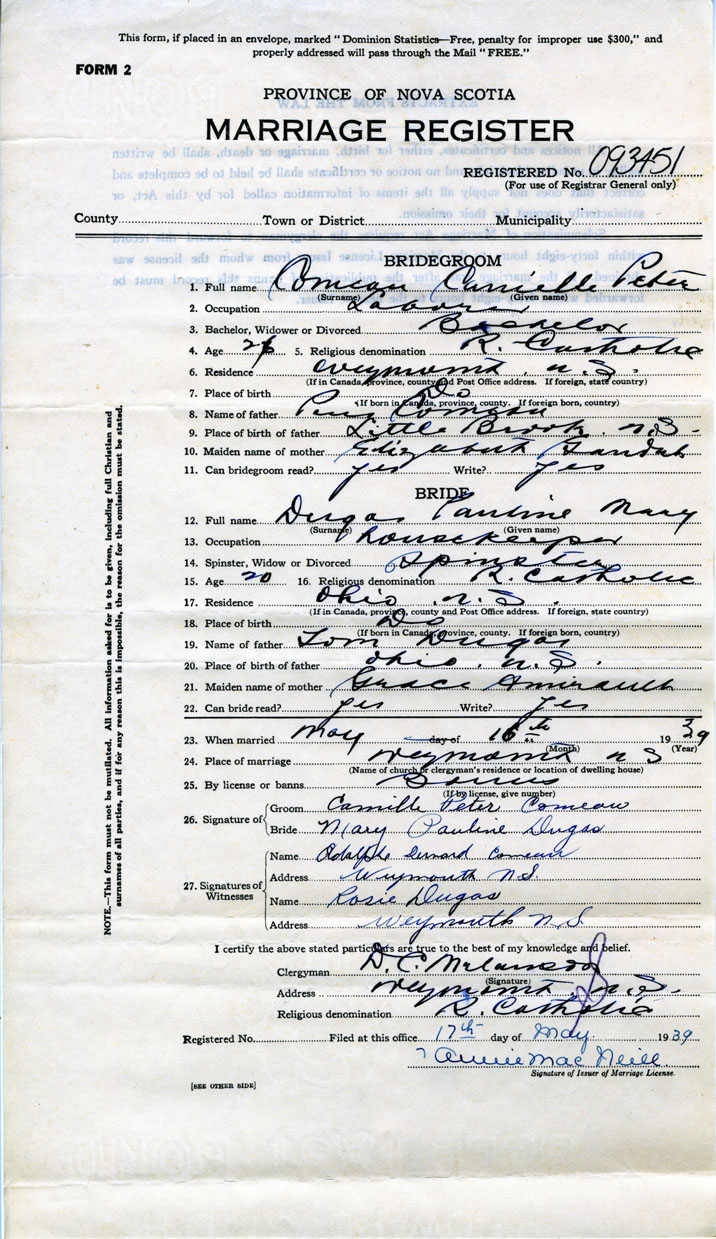 This form, if placed in an envelope, marked "Dominion Statistics—Free, penalty for improper use $300," and
properly addressed will pass through the Mail "FREE."
FORM 2
PROVINCE OF NOVA SCOTIA
MARRIAGE REGISTER
REGISTERED No. 093451
(For use of Registrar General only)
County Town or District Municipality
BRIDEGROOM
1. Full name Comeau Camille Peter
(Surname) (Given name)
2. Occupation Laborer
3. Bachelor, Widower or Divorced Bachelor
4. Age 5. Religious denomination R. Catholic
6. Residence Weymouth, N.S.
(If in Canada, province, county and Post Office address. If foreign, state country)
7. Place of birth Do
(If born in Canada, province, county. If foreign born, country)
8. Name of father Comeau
9. Place of birth of father Little Brook, N.S.
10. Maiden name of mother Elizabeth
11. Can bridegroom read? yes Write? yes
BRIDE
12. Full name Dugas Pauline Mary
(Surname) (Given name)
13. Occupation housekeeper
14. Spinster, Widow or Divorced Spinster
15. Age 20 16. Religious denomination R. Catholic
17. Residence Ohio, N.S.
(If in Canada, province, county and Post Office address. If foreign, state country)
18. Place of birth Do
(If born in Canada, province, county. If foreign born, country)
19. Name of father Tom Dugas
20. Place of birth of father Ohio, N.S.
21. Maiden name of mother Grace Amirault
22. Can bride read? yes Write? yes
23. When married May day of 16th 1939
(Month) (Year)
24. Place of marriage Weymouth N S
(Name of church or clergyman's residence or location of dwelling house)
25. By license or banns Banns
(If by license, give number)
26. Signature of
Groom Camille Peter Comeau
Bride Mary Pauline Dugas
27. Signatures of Witnesses
Name Adolphe Bernard Comeau
Address Weymouth N.S.
Name Rosie Dugas
Address Weymouth N.S.
I certify the above stated particulars are true to the best of my knowledge and belief.
Clergyman D. C.
(Signature)
Address Weymouth, N.S.
Religious denomination R. Catholic
Registered No. Filed at this office 17th day of May 1939
Annie Mac Neill
Signature of Issuer of Marriage License.
[SEE OTHER SIDE]
NOTE.—This form must not be mutilated. All information asked for is to be given, including full Christian and
surnames of all parties, and if for any reason this is impossible, the reason for the omission must be stated.